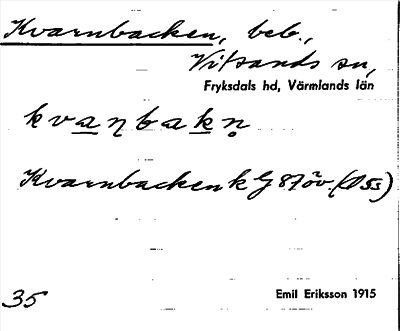 Kvarnbacken, beb.,
Vitsands sn,
Fryksdals hd, Värmlands län
kvaηbakn̥
Kvarnbacken k G 87öv. (D55)
35
Emil Eriksson 1915